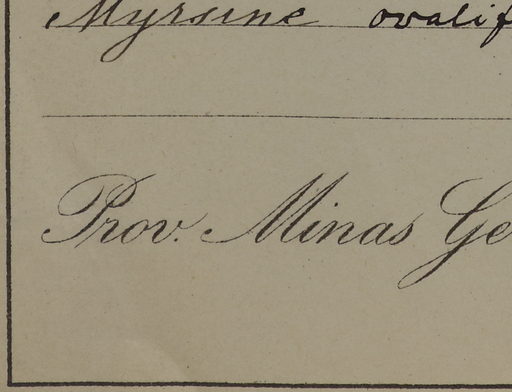 Myrsine ovalif
Prov. Minas Ge